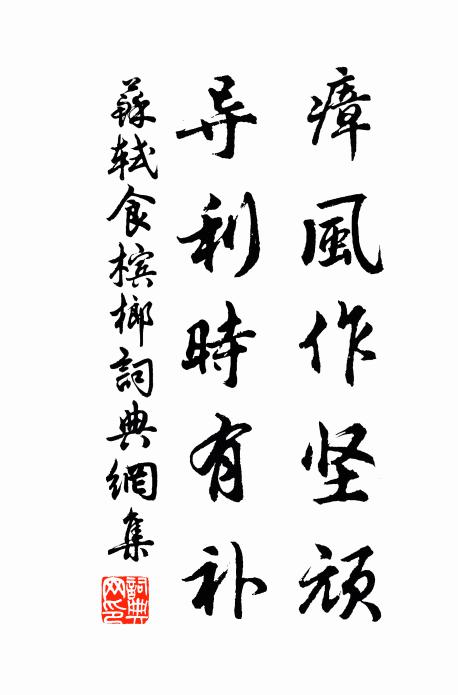 瘴風作坚頑
导利時有补
蘇軾食槟榔詞典網集
詞典